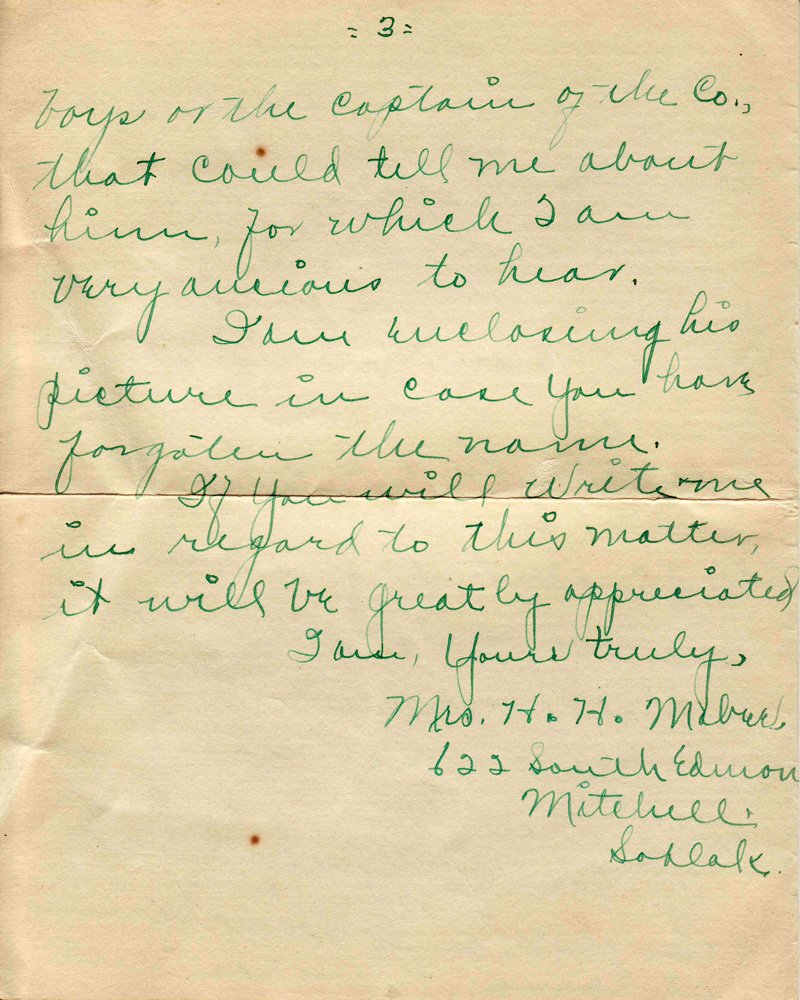 = 3 =
boys or the captain of the Co.,
that could tell me about
him, for which I am
very ancious to hear.
I am enclosing his
picture in case you have
forgoten the name.
If you will write me
in regard to this matter,
it will be greatly appreciated
I am, Yours truly,
Mrs. H. H.
622 South Edmon
Mitchell.
So Dak.